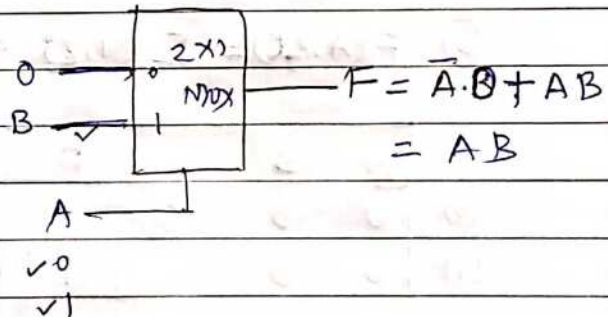 0 0 2x1 MUX F = A̅.0 + AB
B 1 = AB
A
✓0
✓1